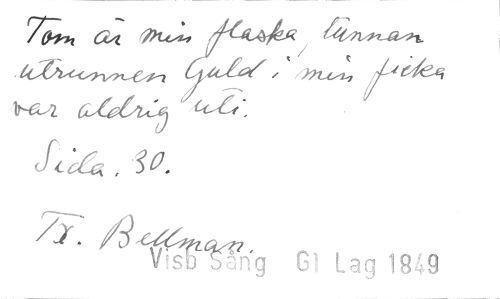 Tom är min flaska, tunnan
utrunnen Guld i min ficka
var aldrig uti.
Sida. 30.
Tx. Bellman.
Visb Sång Gl Lag 1849